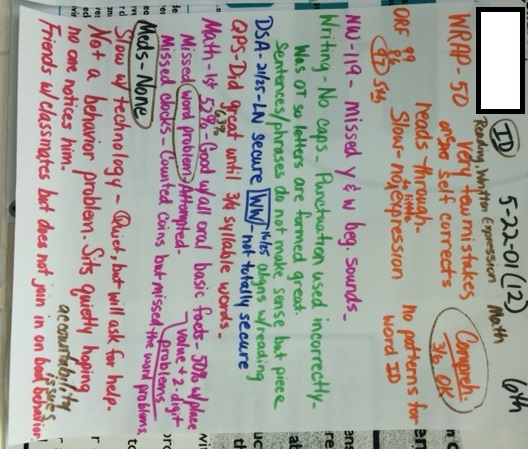 5-22-01 (12) 6th
ID Reading, Written Expression Math
WRAP-5D very few mistakes,
or no self corrects
reads through-
Compreh. 3/6 OK
ORF 99
86
Slow- no, to little expression
no patterns for word ID
NW-119- missed y & w beg. sounds-
Writing- No caps- Punctuation used incorrectly-
Was or so letters are formed great-
Sentences/phrases do not make sense but piece
DSA-21/25-LN secure WW 16/25 aligns w/reading
-not totally secure
QPS-Did great until 3/4 syllable words-
63%
Math-1st 57%-Good w/all oral basic facts-50% w/place
value + 2-digit
Missed word problem Attempted-
problems
Missed clocks- Counted coins but missed the word problems
Meds- None
Slow w/ technology- Quiet, but will ask for help-
Not a behavior problem. Sits quietly hoping
no one notices him-
accountability issues
Friends w/classmates but does not join in on bad behavior.